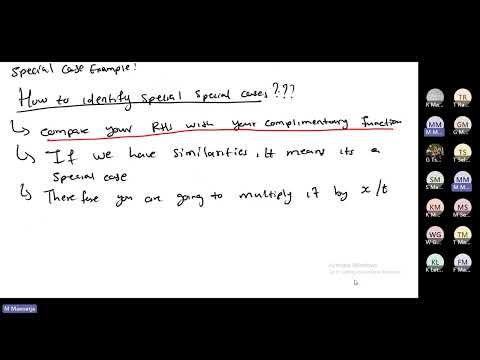 Special Case Example:
How to identify special special cases???
↳ compare your RHS with your complimentary function
↳ If we have similarities, it means its a
special case
↳ There fore you are going to multiply it by x/t
Activate Windows
Go to Settings to activate Windows.
MM
KM
WG
KL
TR
GM
TS
SM
MS
TM
FM
M Mamatja